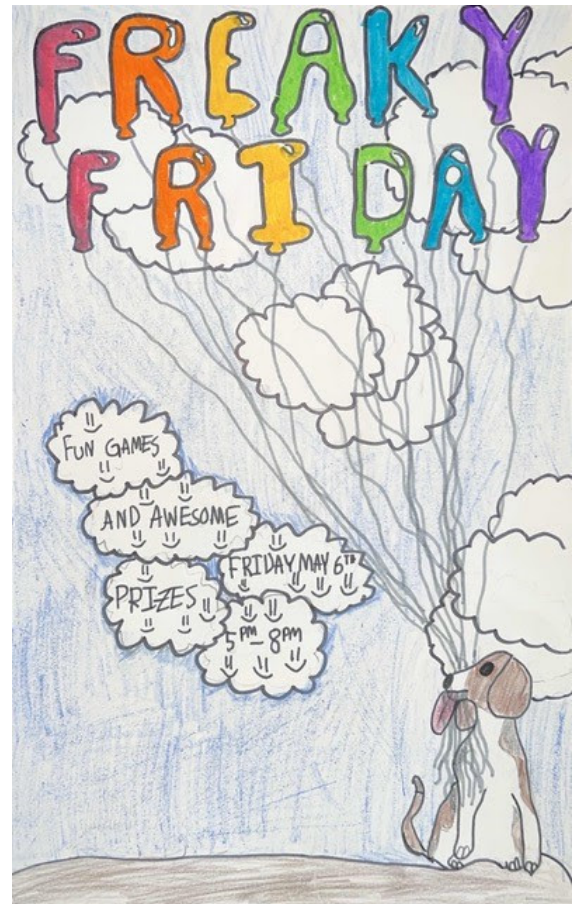 FREAKY
FRIDAY
FUN GAMES
AND AWESOME
PRIZES
FRIDAY MAY 6TH
5PM-8PM